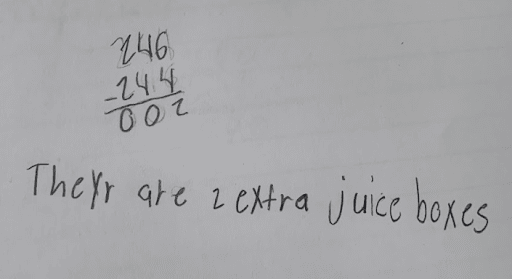 246
-244
002
Theyr are 2 extra juice boxes